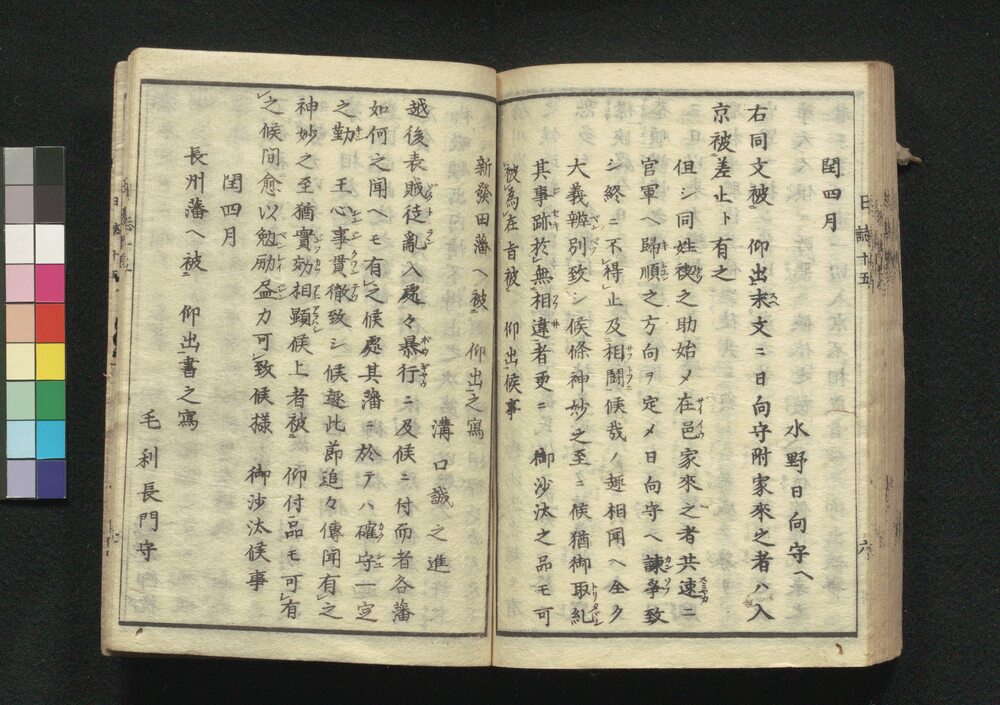 閏四月
水野日向守へ
右同文被　仰出末文ニ日向守附家來之者ハ入
京被差止ト有之
但シ同姓稜之助始メ在邑家來之者共速ニ
官軍ヘ歸順之方向ヲ定メ日向守ヘ諫爭致
シ終ニ不得止及相鬪候哉ノ趣相聞ヘ全ク
大義辨別致シ候條神妙之至ニ候猶御取糺
其事跡於無相違者更ニ　御沙汰之品モ可
被為在旨被　仰出候事
新發田藩ヘ被　仰出之寫
溝口誠之進
越後表賊徒亂入處々暴行ニ及候ニ付而者各藩
如何之聞ヘモ有之候處其藩ニ於テハ確守一定
之勤　王心事貫徹致シ候趣此節追々傳聞有之
神妙之至猶實効相顯候上者被　仰付品モ可有
之候間愈以勉励盆力可致候様　御沙汰候事
閏四月
長州藩ヘ被　仰出書之寫
毛利長門守
日誌十五
六